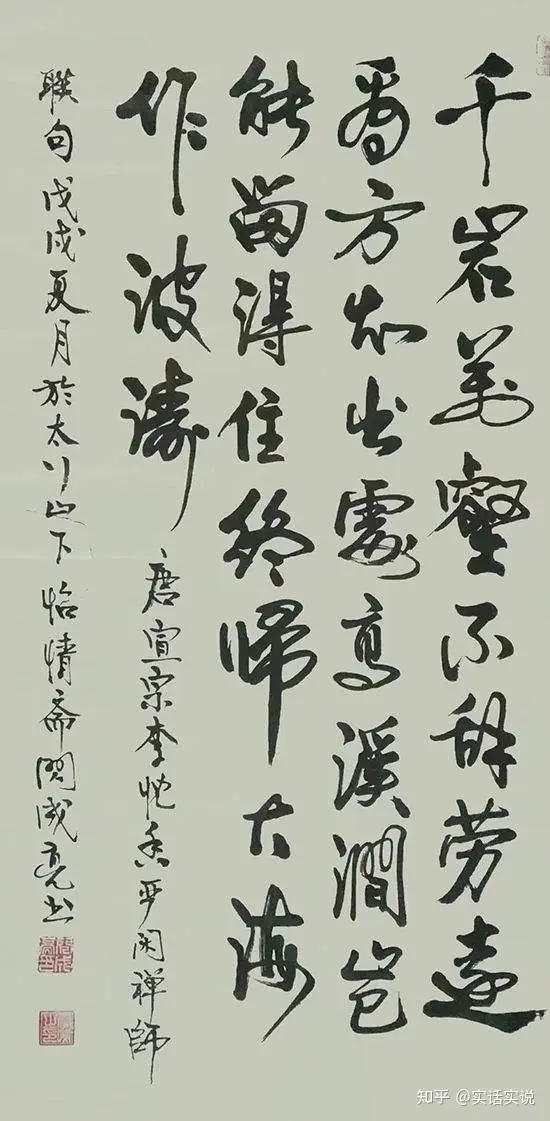 千岩萬壑不辞劳遠
看方知出處高溪澗岂
能留得住终歸大海
作波濤
唐宣宗李忱香严闲禅師
聯句戊戌夏月於太行山下怡情斋成亮书
知乎 @实话实说